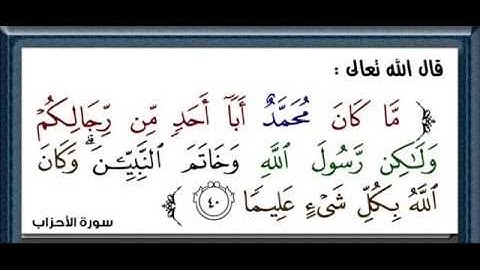 قال الله تعالى :
﴿ مَّا كَانَ مُحَمَّدٌ أَبَآ أَحَدٖ مِّن رِّجَالِكُمۡ
وَلَٰكِن رَّسُولَ ٱللَّهِ وَخَاتَمَ ٱلنَّبِيِّـۧنَۗ وَكَانَ
ٱللَّهُ بِكُلِّ شَيۡءٍ عَلِيمٗا ٤٠ ﴾
سورة الأحزاب